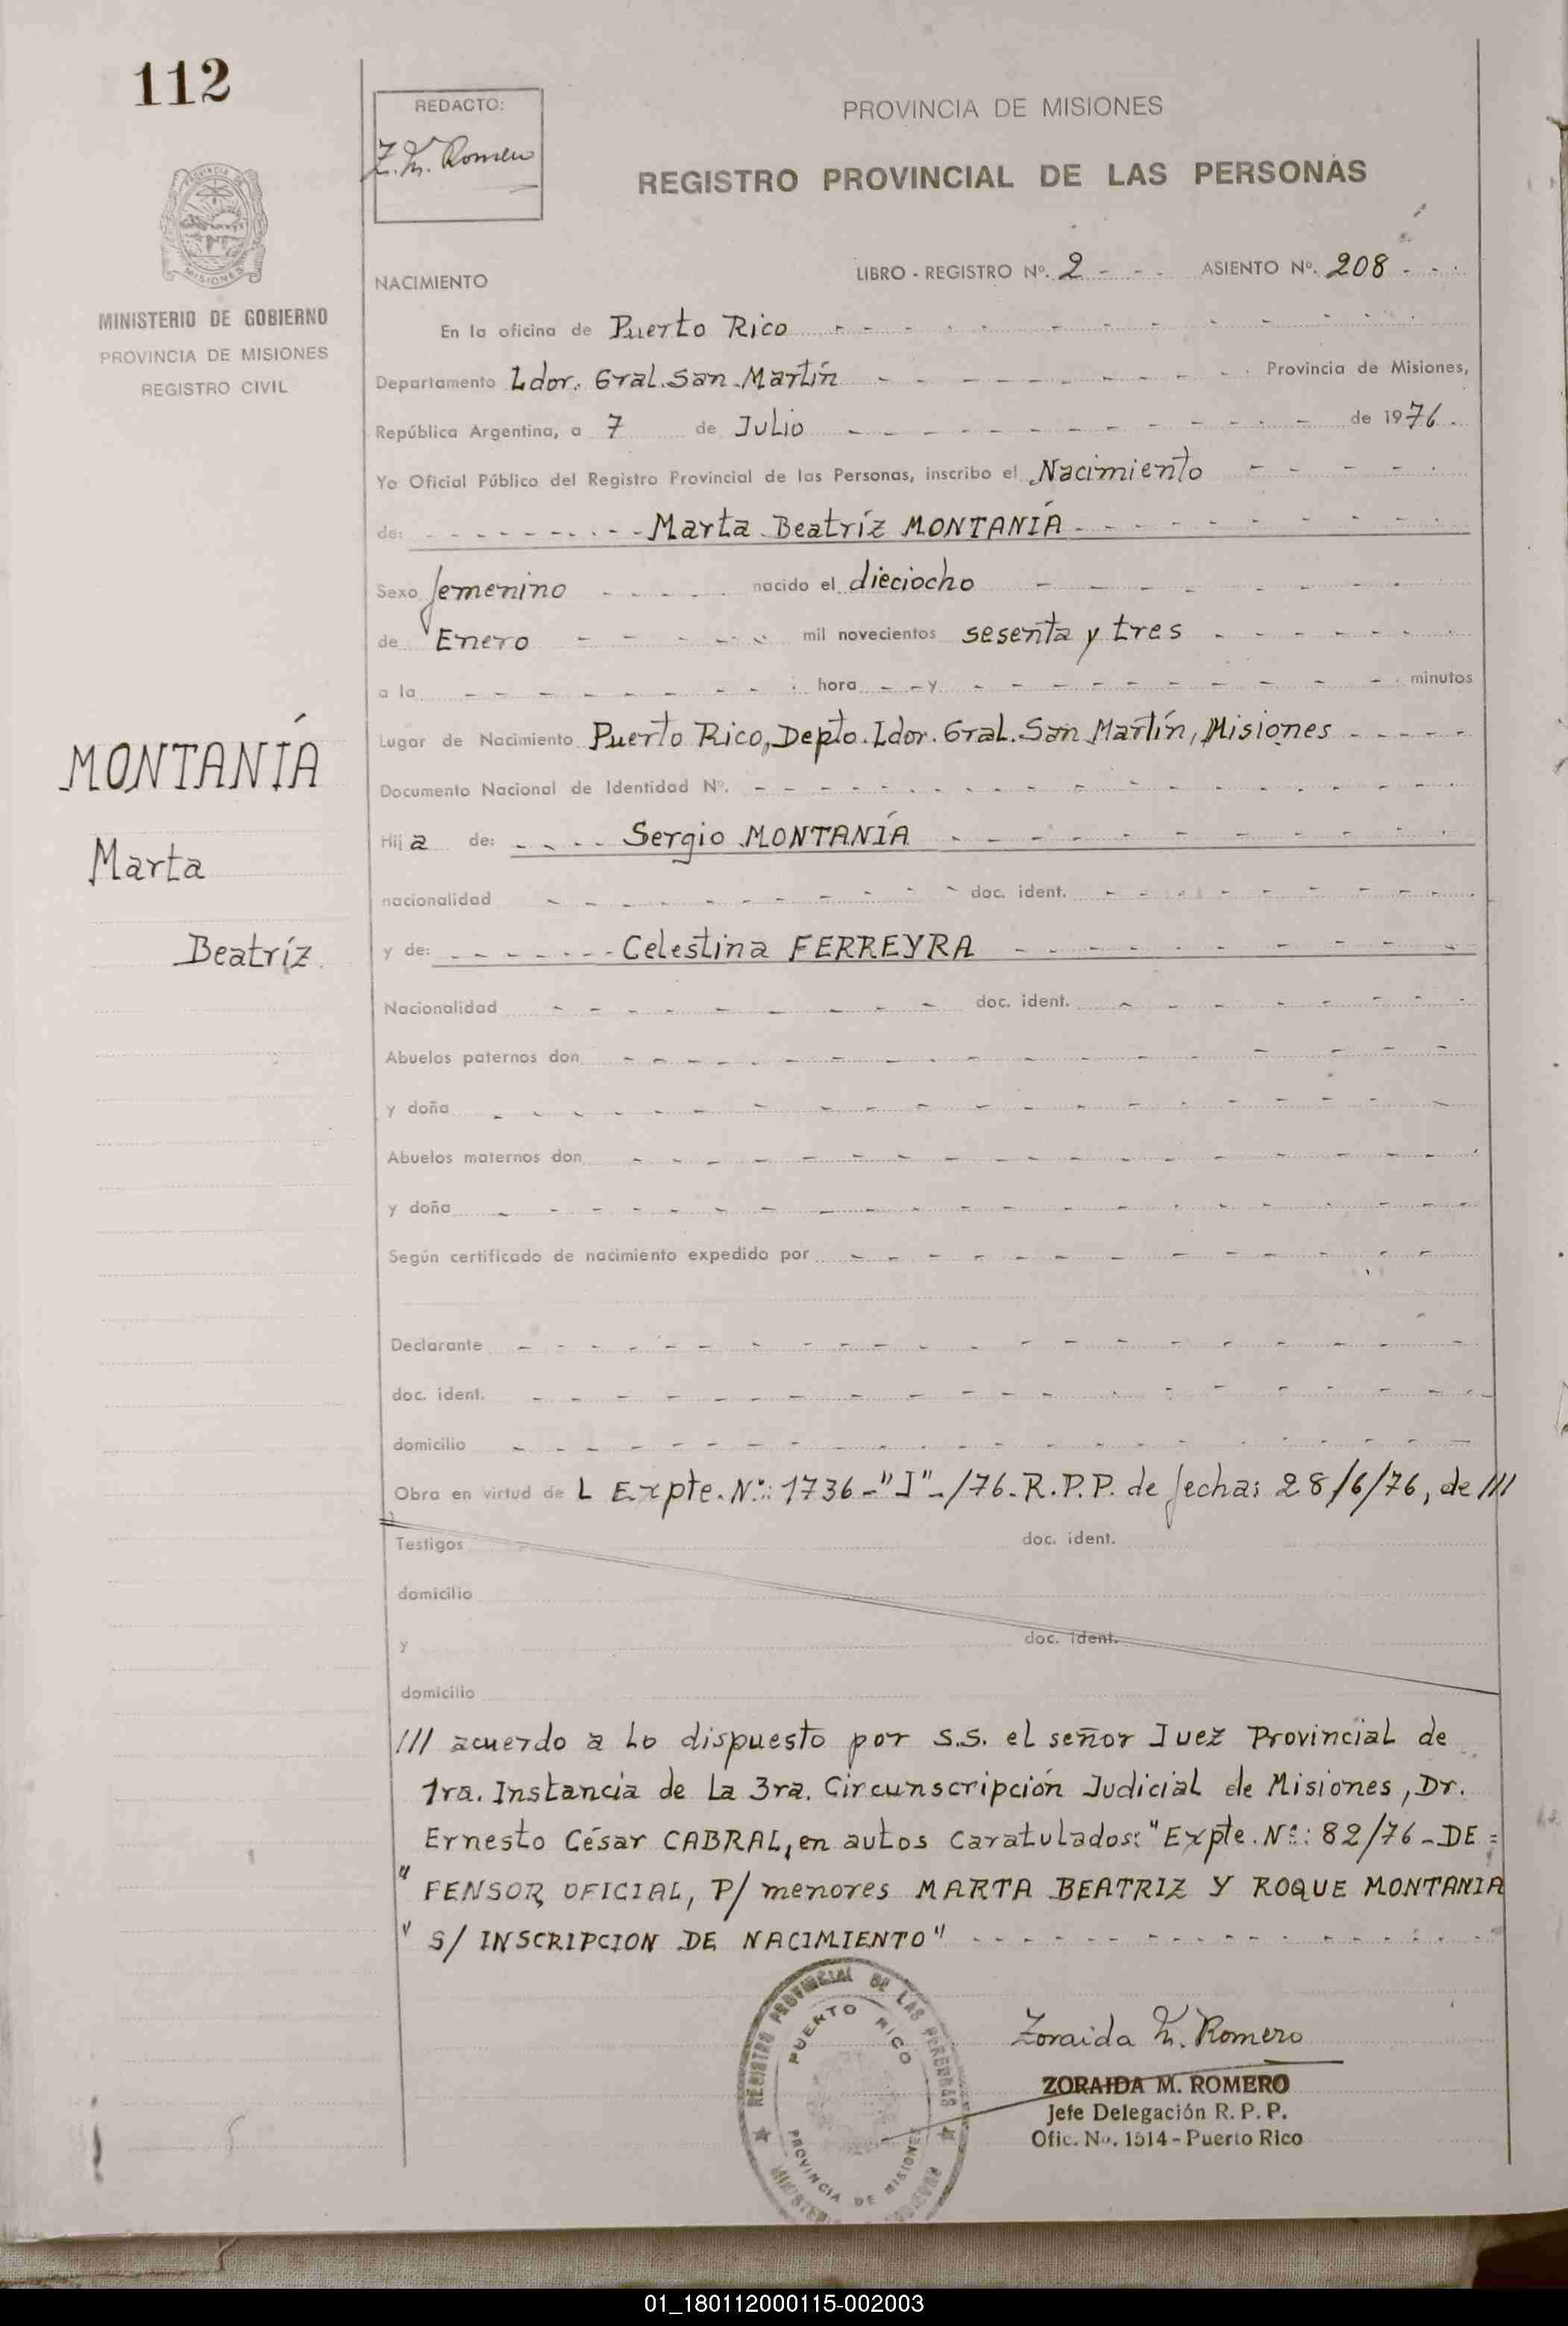 112
REDACTO:
Z. M. Romero
PROVINCIA DE MISIONES
REGISTRO PROVINCIAL DE LAS PERSONAS
MINISTERIO DE GOBIERNO
PROVINCIA DE MISIONES
REGISTRO CIVIL
NACIMIENTO LIBRO - REGISTRO Nº. 2 - - - ASIENTO Nº. 208 - - -
En la oficina de Puerto Rico
Departamento Ldor. Gral. San Martín Provincia de Misiones,
República Argentina, a 7 de Julio de 1976.
Yo Oficial Público del Registro Provincial de las Personas, inscribo el Nacimiento
de: Marta Beatríz MONTANÍA
Sexo femenino nacido el dieciocho
de Enero mil novecientos sesenta y tres
a la hora y minutos
Lugar de Nacimiento Puerto Rico, Depto. Ldor. Gral. San Martín, Misiones
Documento Nacional de Identidad Nº.
Hija de: Sergio MONTANÍA
nacionalidad doc. ident.
y de: Celestina FERREYRA
Nacionalidad doc. ident.
Abuelos paternos don
y doña
Abuelos maternos don
y doña
Según certificado de nacimiento expedido por
Declarante
doc. ident.
domicilio
Obra en virtud de L Expte. Nº: 1736-"J"-/76-R.P.P. de fecha: 28/6/76, de ///
Testigos doc. ident.
domicilio
y doc. ident.
domicilio
/// acuerdo a lo dispuesto por S.S. el señor Juez Provincial de
1ra. Instancia de La 3ra. Circunscripción Judicial de Misiones, Dr.
Ernesto César CABRAL, en autos caratulados: "Expte. Nº: 82/76-DE=
" FENSOR OFICIAL, P/ menores MARTA BEATRIZ Y ROQUE MONTANIA
" S/ INSCRIPCION DE NACIMIENTO"
MONTANÍA
Marta
Beatríz.
REGISTRO PROVINCIAL DE LAS PERSONAS
PUERTO RICO
PROVINCIA DE MISIONES
Zoraida M. Romero
ZORAIDA M. ROMERO
Jefe Delegación R. P. P.
Ofic. No. 1514 - Puerto Rico
01_180112000115-002003